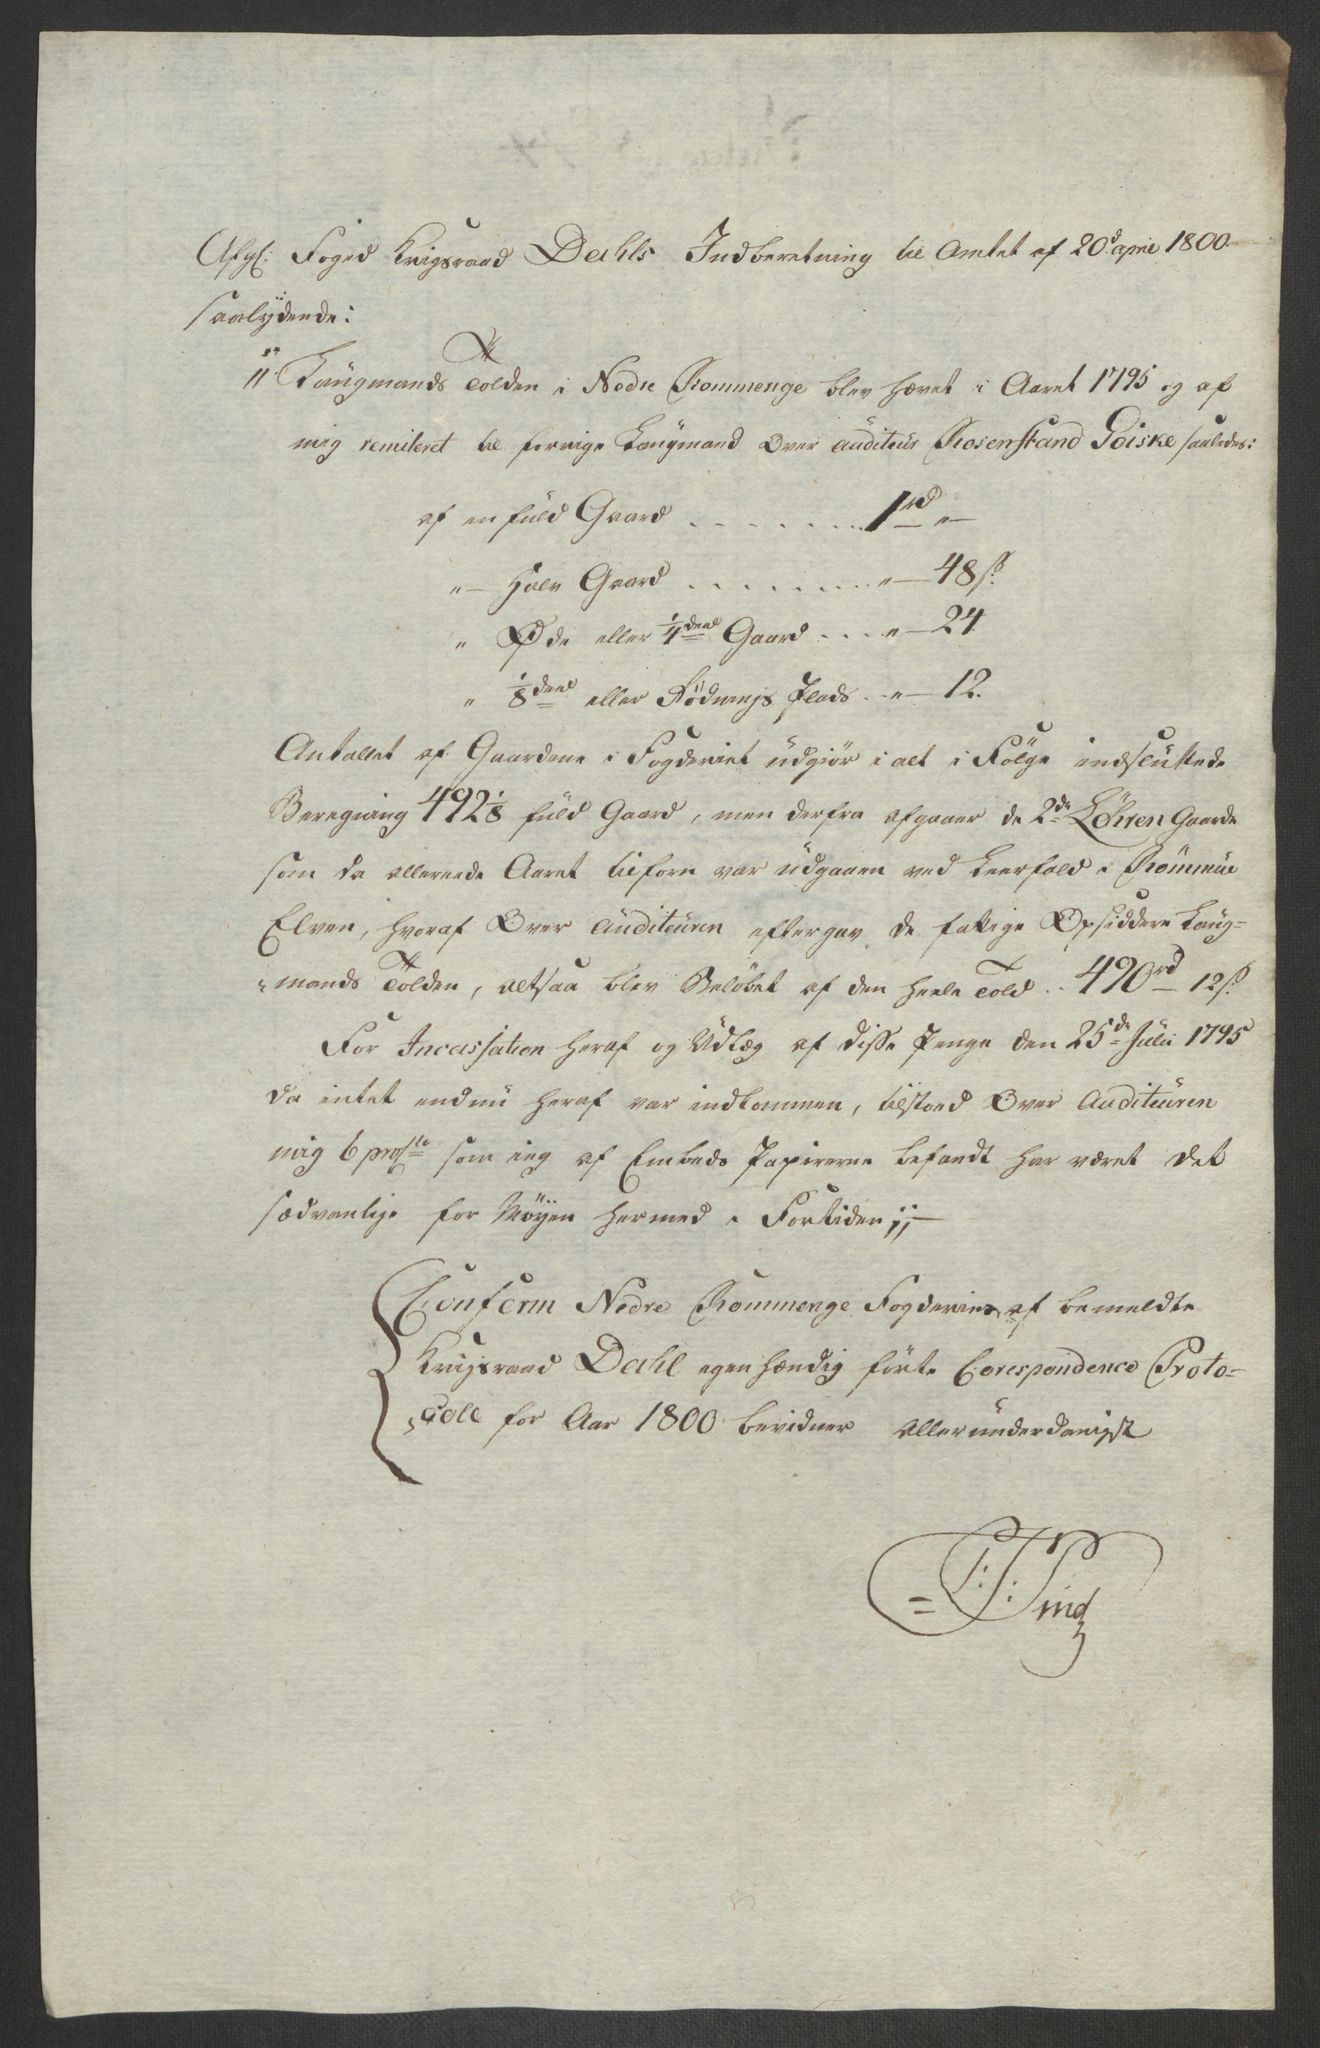 Afg: Foged Krigsraad Dahls Indberetning til Amtet af 20d april 1800
saalydende:
"Laugmands Tolden i Nedre Rommerige blev hævet i Aaret 1795 og af
mig remiteret til forrige Laugmand Over auditeur Rosenstand Goiske saaledes:
af en fuld Gaard . . . . . . . 1 rd "
" — Halv Gaard . . . . . . . " — 48 ß.
" Øde eller 1/4 deel Gaard . . . " — 24
" 1/8 deel eller Rødnings Plads . . " — 12.
Antallet af Gaardene i Fogderiet udgiør i alt i Følge indsluttede
Beregning 492 1/8 fuld Gaard, men derfra afgaaer de 2de Løhren Gaarde
som da allerede Aaret tilforn var udgaaen ved Leerfald i Rømmue
Elven, hvoraf Over Auditeuren eftergav de fattige Opsiddere Laug=
=mands Tolden, altsaa blev Beløbet af den heele Told . . 490 rd 12 ß.
For Incassation heraf og Udlæg af disse Penge den 25de Julii 1795
da intet endnu heraf var indkommen, tilstoed Over Auditeuren
mig 6 procto som ieg af Embeds Papirerne befandt har været det
sædvanlige for Møyen hermed i Fortiden "—
Conform Nedre Rommerige Fogderies af bemeldte
Krigsraad Dahl egenhændig førte Corespondence Proto=
=coll for Aar 1800 bevidner allerunderdanigst